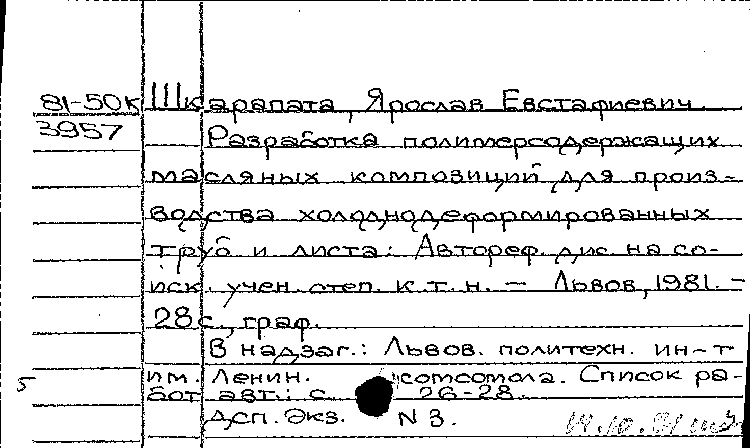 81-50к Шкарапата, Ярослав Евстафиевич.
3957 Разработка полимерсодержащих
масляных композиций для произ-
водства холоднодеформированных
труб и листа: Автореф. дис. на со-
иск. учен. степ. к. т. н. – Львов, 1981. –
28 с., граф.
В надзаг.: Львов. политехн. ин-т
им. Ленин. комсомола. Список ра-
5 бот авт.: с. 26-28.
Дсп. Экз. N 3.